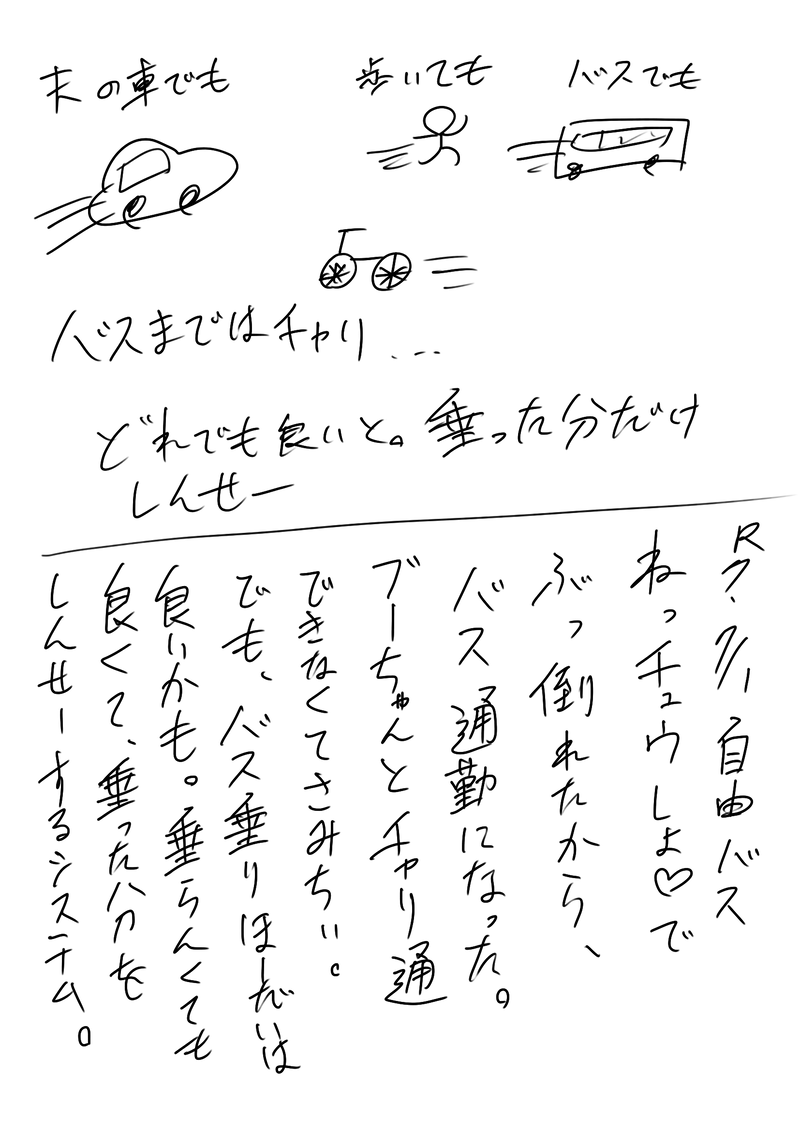 夫の車でも
歩いても
バスでも
バスまではチャリ...
どれでも良いと。乗った分だけ
しんせー
自由バス
ねっチュウしよ♡で
ぶっ倒れたから、
バス通勤になった。
ブーちゃんとチャリ通
できなくてさみちい。
でも、バス乗りほーだいは
良いかも。乗らんくても
良くて、乗った分を
しんせーするシステム。